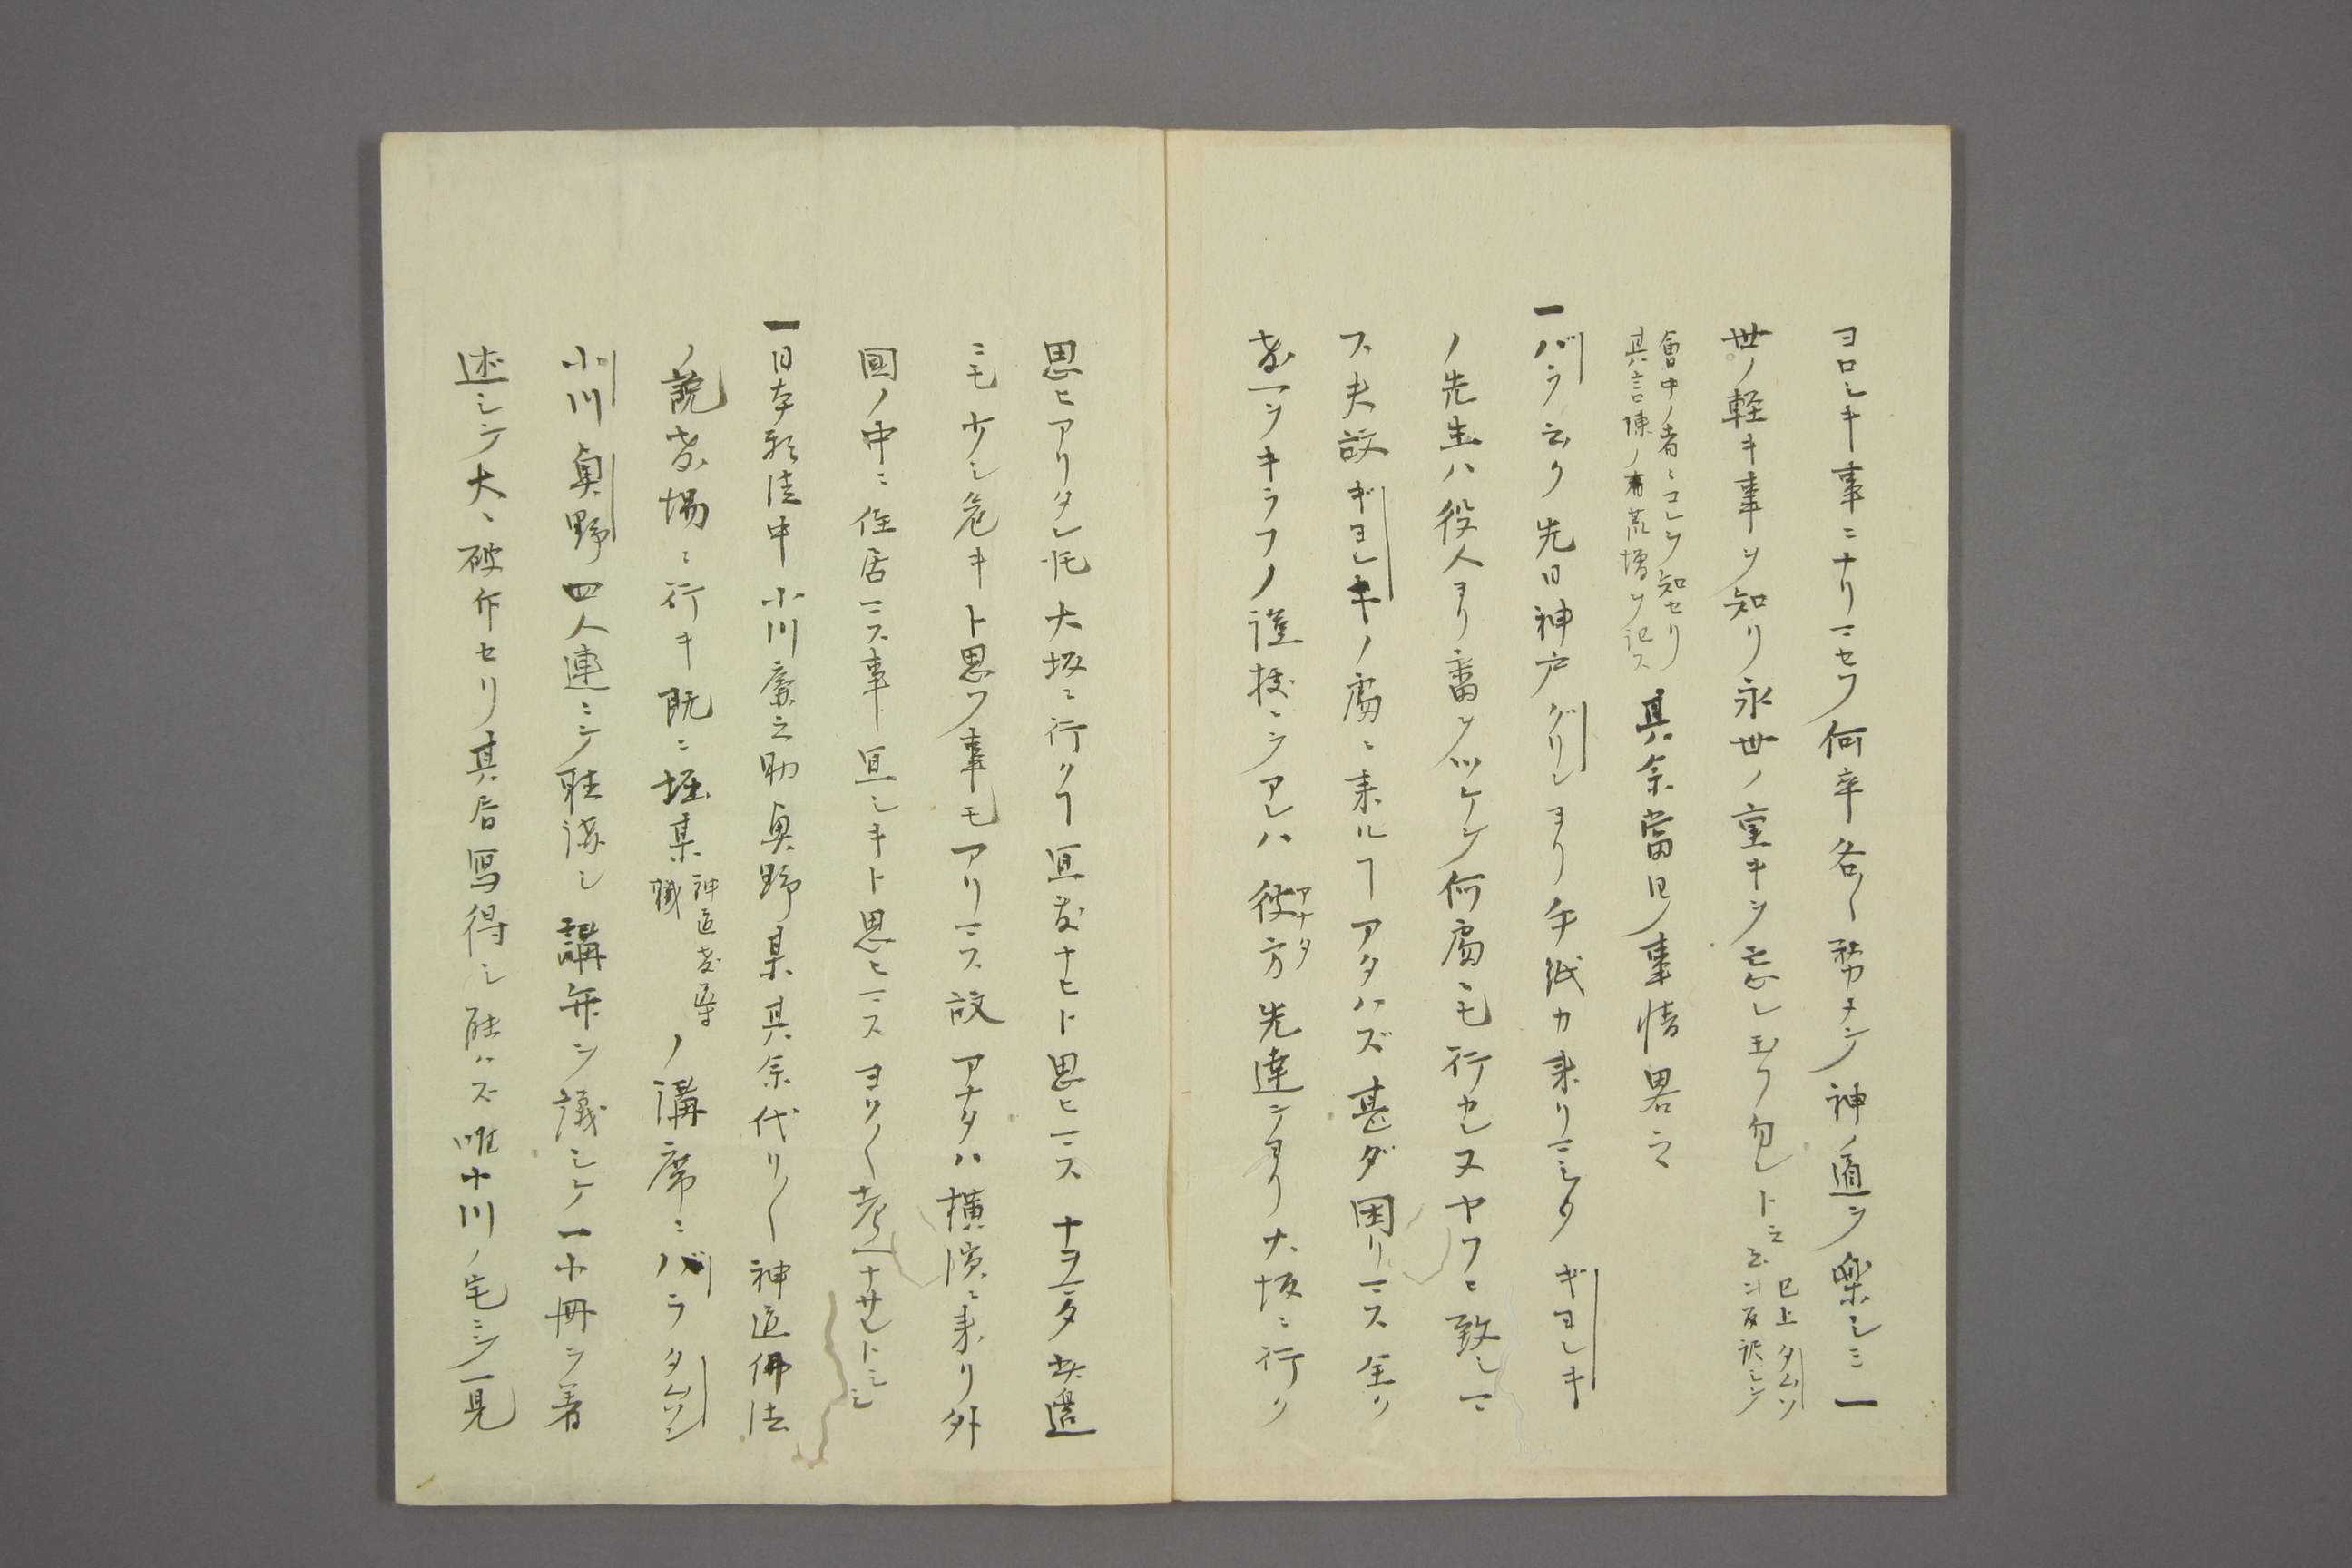 ヨロシキ事ニナリマセフ何卒各〻務メテ神ノ道ヲ楽シミ一
世ノ軽キ事ヲ知リ永世ノ重キヲ忘レ玉フ勿レト云
已上タムソ
會中ノ者ニコレヲ知セリ
其言陳ノ
ヲ記ス
其余當日ノ事情畧之
一バラ云ク先日神戸グリンヨリ手紙カ来リマシタギヨレキ
ノ先生ハ役人ヨリ番ヲツケテ何處ニモ行カレヌヤフニ致シマ
ス夫故ギヨレキノ處ニ来ルヿアタハズ甚ダ困リマス全ク
教ヲキラフノ證拠テアレハ彼方先達テヨリ大坂ニ行ク
アナタ
思ヒアリタレ𪜈大坂ニ行クヿ宜敷ナヒト思ヒマスナヲマタ此邉
ニモ少シ危キト思フ事モアリマス故アナタハ横濱ニ来リ外
國ノ中ニ住居マス事宜シキト思ヒマスヨク〱考ヘナサレト云
一日本耶徒中小川廉之助奥野某其余代リ〱神道佛法
ノ説教場ニ行キ既ニ堀某
神道教導
職
ノ講席ニバラタムソン
小川奥野四人連ニテ聴講シ講弁ヲ議シケ一小冊ヲ著
述シテ大ニ破斥セリ其書写得シ能ハズ唯小川ノ宅ニテ一見